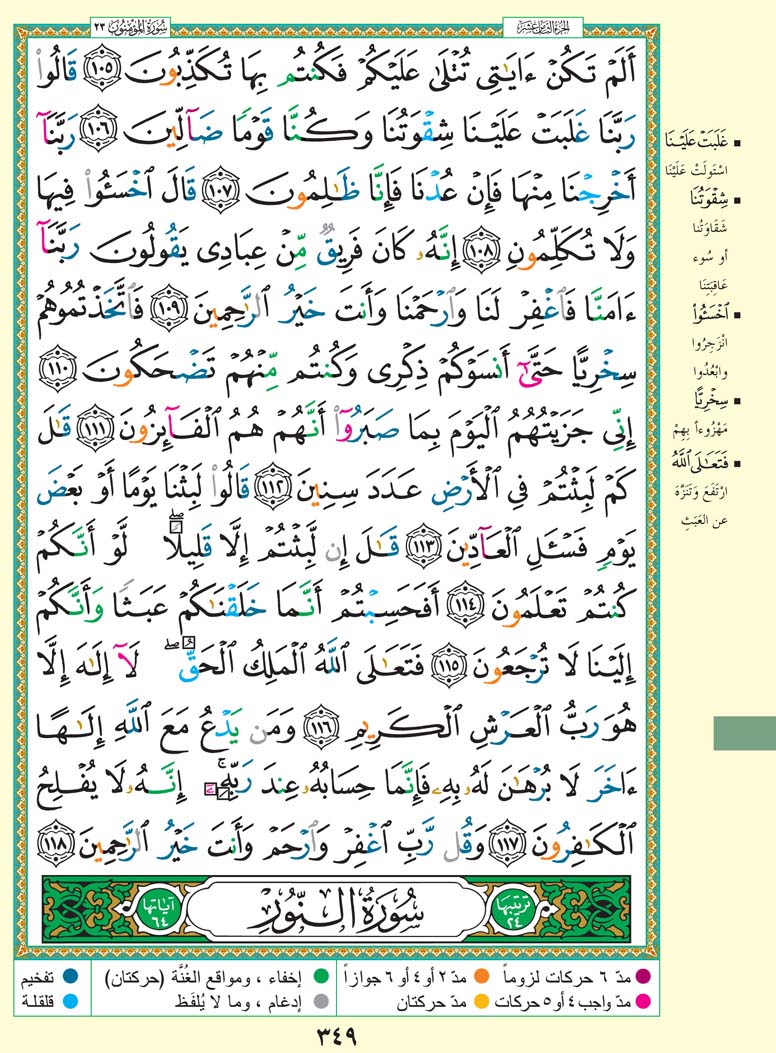 الجزء الثامن عشر
سُورَةُ المُؤْمِنُونَ ٢٣
أَلَمْ تَكُنْ ءَايَٰتِى تُتْلَىٰ عَلَيْكُمْ فَكُنتُم بِهَا تُكَذِّبُونَ ١٠٥ قَالُوا۟
رَبَّنَا غَلَبَتْ عَلَيْنَا شِقْوَتُنَا وَكُنَّا قَوْمًا ضَآلِّينَ ١٠٦ رَبَّنَآ
أَخْرِجْنَا مِنْهَا فَإِنْ عُدْنَا فَإِنَّا ظَٰلِمُونَ ١٠٧ قَالَ ٱخْسَـُٔوا۟ فِيهَا
وَلَا تُكَلِّمُونِ ١٠٨ إِنَّهُۥ كَانَ فَرِيقٌ مِّنْ عِبَادِى يَقُولُونَ رَبَّنَآ
ءَامَنَّا فَٱغْفِرْ لَنَا وَٱرْحَمْنَا وَأَنتَ خَيْرُ ٱلرَّٰحِمِينَ ١٠٩ فَٱتَّخَذْتُمُوهُمْ
سِخْرِيًّا حَتَّىٰٓ أَنسَوْكُمْ ذِكْرِى وَكُنتُم مِّنْهُمْ تَضْحَكُونَ ١١٠
إِنِّى جَزَيْتُهُمُ ٱلْيَوْمَ بِمَا صَبَرُوٓا۟ أَنَّهُمْ هُمُ ٱلْفَآئِزُونَ ١١١ قَٰلَ
كَمْ لَبِثْتُمْ فِى ٱلْأَرْضِ عَدَدَ سِنِينَ ١١٢ قَالُوا۟ لَبِثْنَا يَوْمًا أَوْ بَعْضَ
يَوْمٍ فَسْـَٔلِ ٱلْعَآدِّينَ ١١٣ قَٰلَ إِن لَّبِثْتُمْ إِلَّا قَلِيلًا ۖ لَّوْ أَنَّكُمْ
كُنتُمْ تَعْلَمُونَ ١١٤ أَفَحَسِبْتُمْ أَنَّمَا خَلَقْنَٰكُمْ عَبَثًا وَأَنَّكُمْ
إِلَيْنَا لَا تُرْجَعُونَ ١١٥ فَتَعَٰلَى ٱللَّهُ ٱلْمَلِكُ ٱلْحَقُّ ۖ لَآ إِلَٰهَ إِلَّا
هُوَ رَبُّ ٱلْعَرْشِ ٱلْكَرِيمِ ١١٦ وَمَن يَدْعُ مَعَ ٱللَّهِ إِلَٰهًا
ءَاخَرَ لَا بُرْهَٰنَ لَهُۥ بِهِۦ فَإِنَّمَا حِسَابُهُۥ عِندَ رَبِّهِۦٓ ۚ إِنَّهُۥ لَا يُفْلِحُ
ٱلْكَٰفِرُونَ ١١٧ وَقُل رَّبِّ ٱغْفِرْ وَٱرْحَمْ وَأَنتَ خَيْرُ ٱلرَّٰحِمِينَ ١١٨
ترتيبها ٢٤
سُورَةُ النُّورِ
آياتها ٦٤
غَلَبَتْ عَلَيْنَا
اسْتَولَتْ عَلَيْنَا
شِقْوَتُنَا
شَقَاوَتُنا
أو سُوء
عَاقِبَتِنَا
ٱخْسَـُٔوا۟
انْزَجِرُوا
وابْعُدُوا
سِخْرِيًّا
مَهْزُوءاً بِهِمْ
فَتَعَٰلَى ٱللَّهُ
ارْتَفَعَ وَتَنَزَّهَ
عن العَبَثِ
مدّ ٦ حركات لزوماً
مدّ ٢ أو ٤ أو ٦ جوازاً
إخفاء ، ومواقع الغُنَّة (حركتان)
تفخيم
مدّ واجب ٤ أو ٥ حركات
مدّ حركتان
إدغام ، وما لا يُلفَظ
قلقلة
٣٤٩